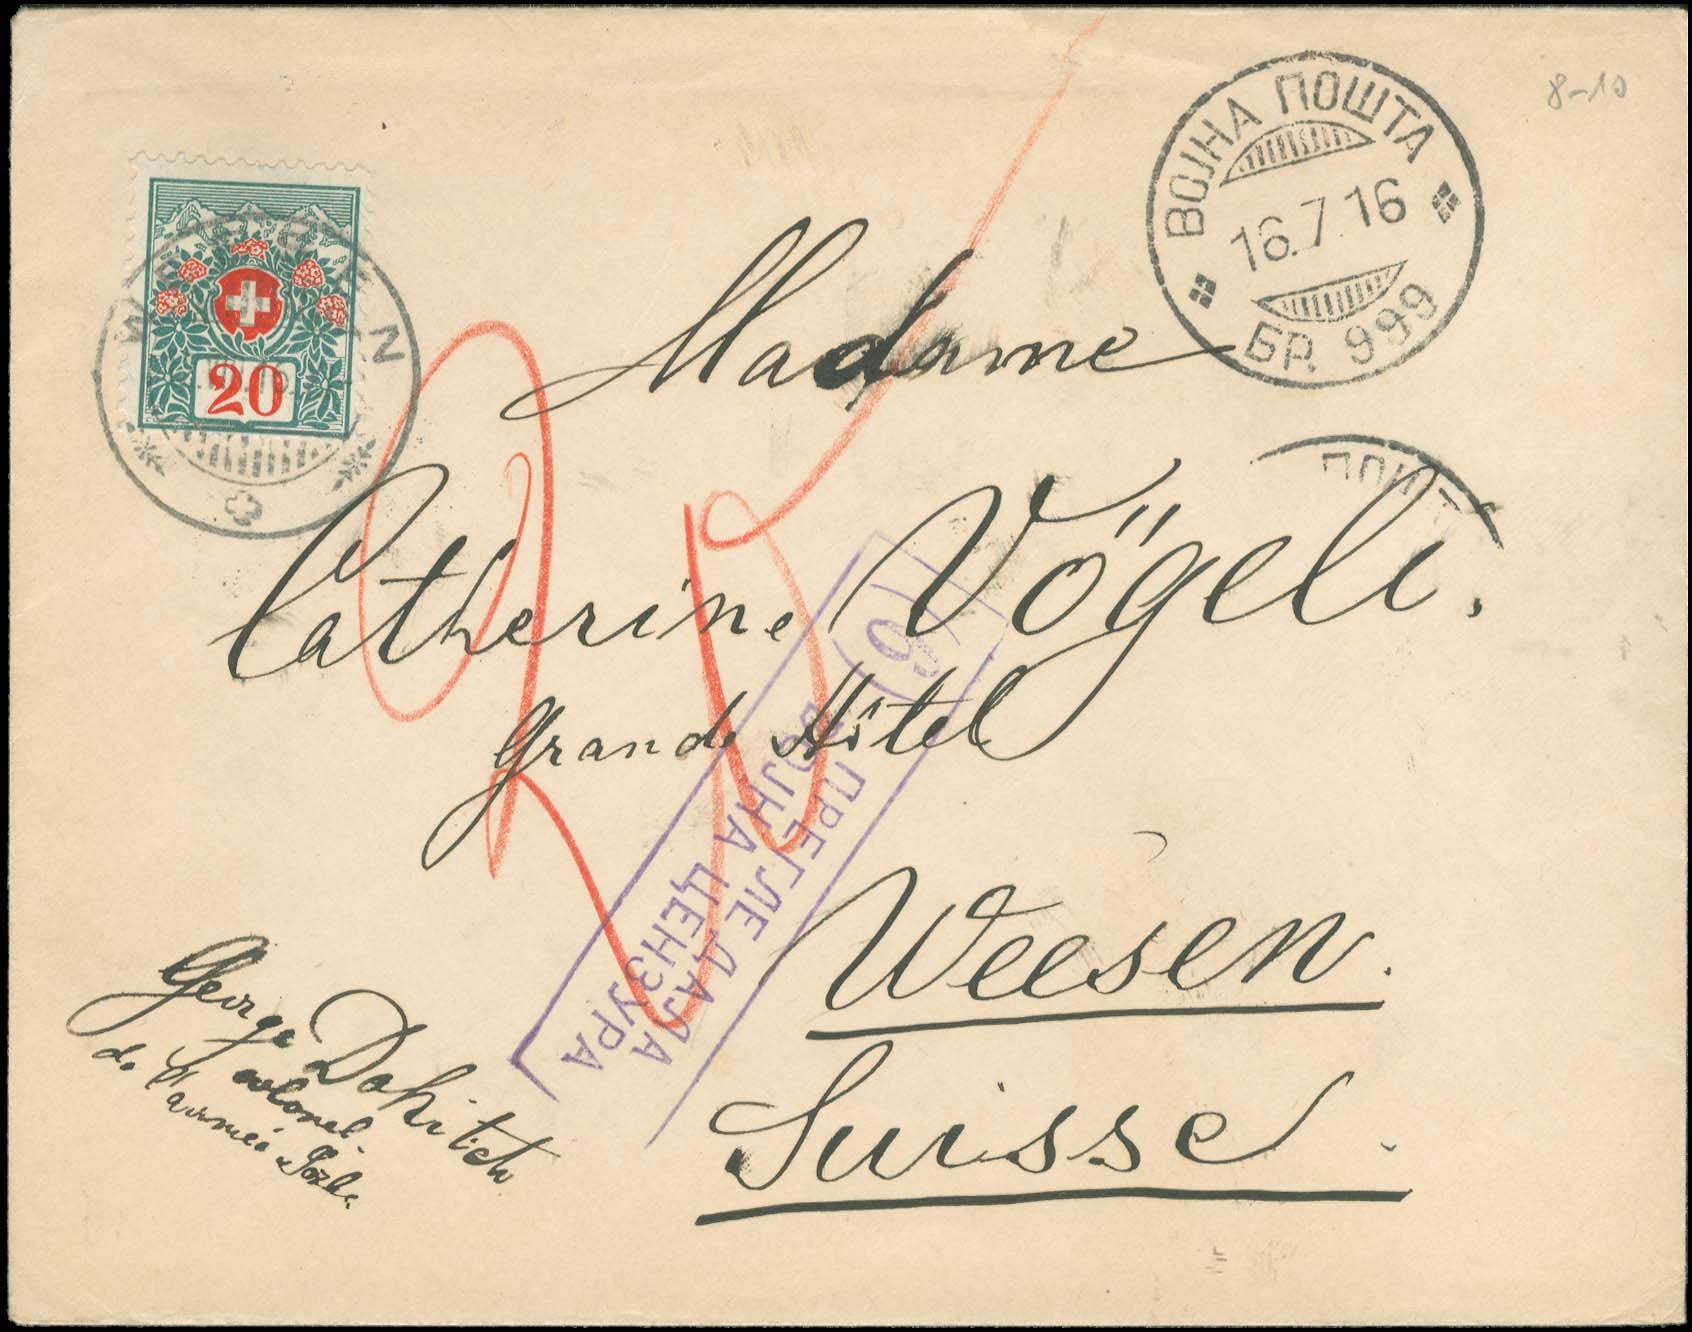 8-10
ВОЈНА ПОШТА
16.7.16
БР. 999
20
WEESEN
Madame
Catherine Vögeli.
Grand Hôtel
Weesen.
Suisse.
(6)
ПРЕГЛЕДАЛА
ВОЈНА ЦЕНЗУРА
George Dohitch
colonel
de l'armée